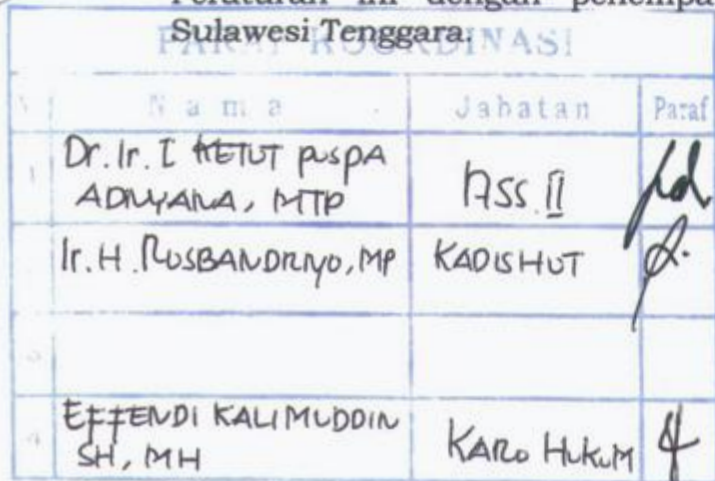 Peraturan ini dengan
Sulawesi Tenggara.
PARAF KOORDINASI
Nama Jabatan Paraf
1 Dr. Ir. I KETUT PUSPA
ADNYANA, MTP
ASS. II
Ir. H. RUSBANDRIYO, MP KADISHUT
3
4 EFFENDI KALIMUDDIN
SH, MH
KARO HUKUM